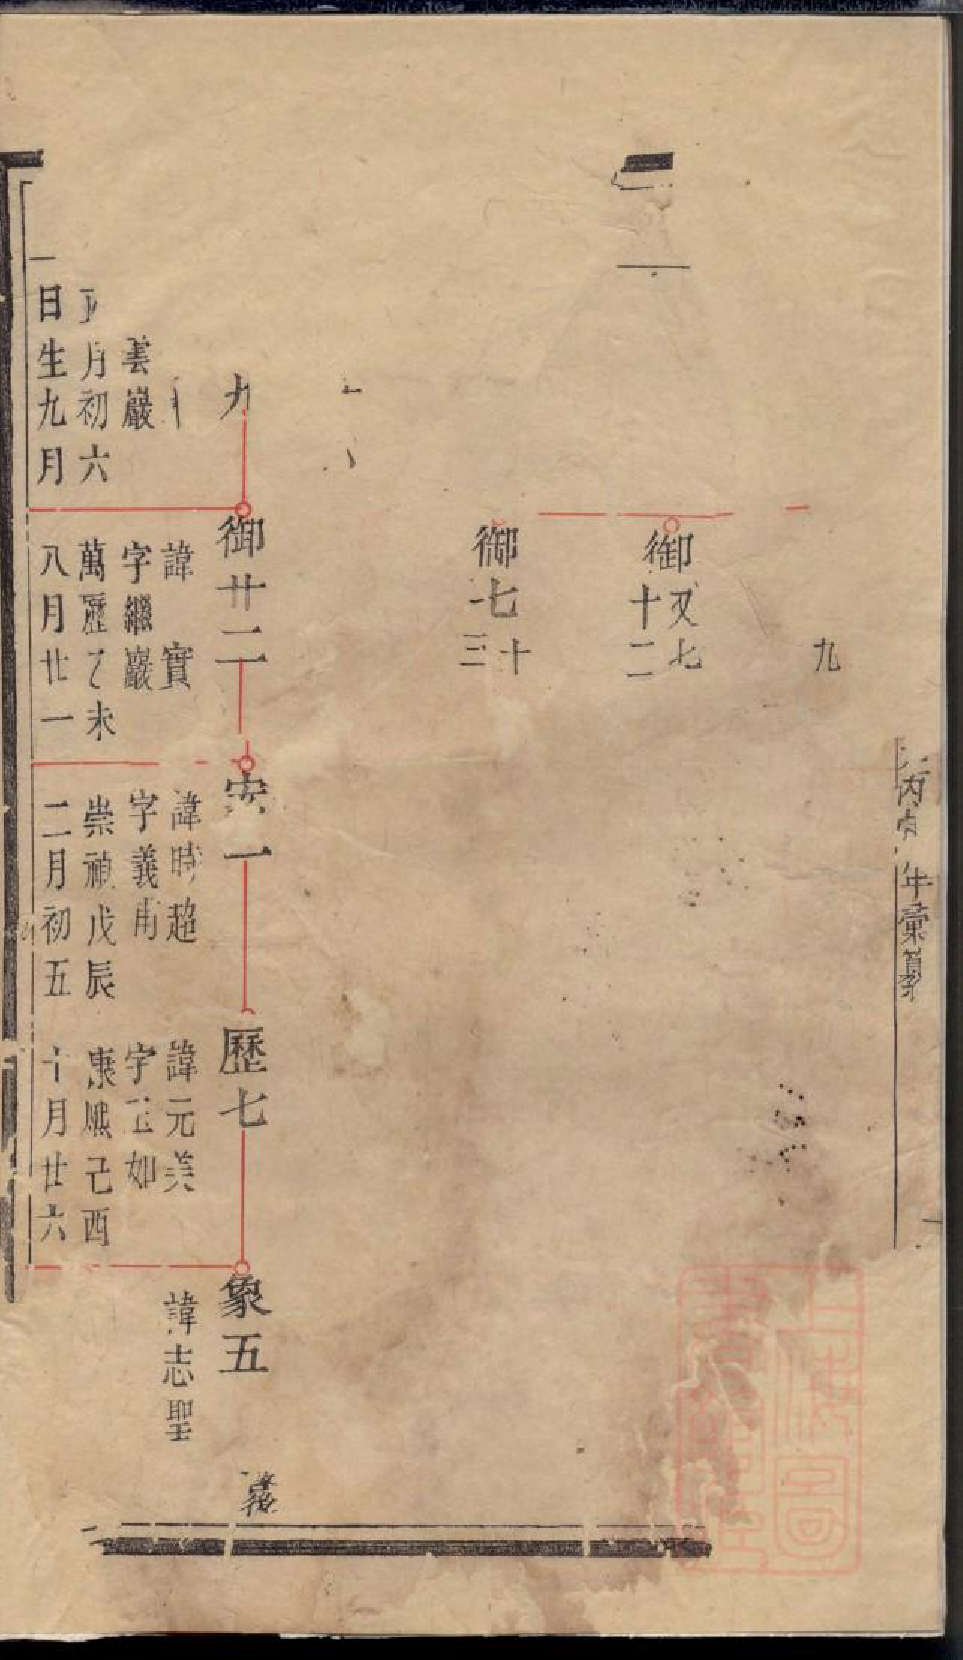 九
御又七十二
御七十三
九
御廿二
安一
歷七
象五
諱實
字繼巖
萬歷乙未
八月廿一
諱時超
字義甫
崇禎戊辰
二月初五
諱元美
字 如
康熙己酉
十月廿六
諱志聖
雲巖
正月初六
日生九月
年彙纂